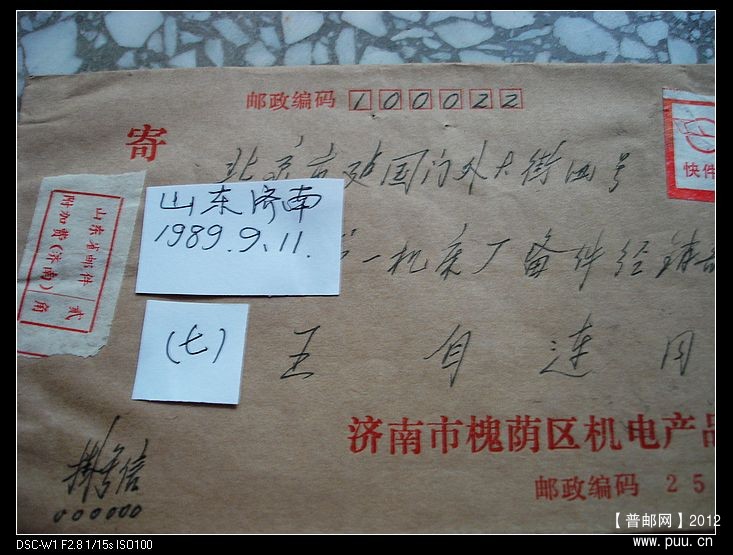 邮政编码 100022
寄
快件
北京市建国门外大街四号
山东济南
1989.9.11.
一机床厂备件经销部
山东省邮件
附加费(济南)
贰角
(七)
王自连 同
济南市槐荫区机电产品
挂号信
邮政编码 25
【普邮网】2012
www.puu.cn
DSC-W1 F2.8 1/15s ISO100